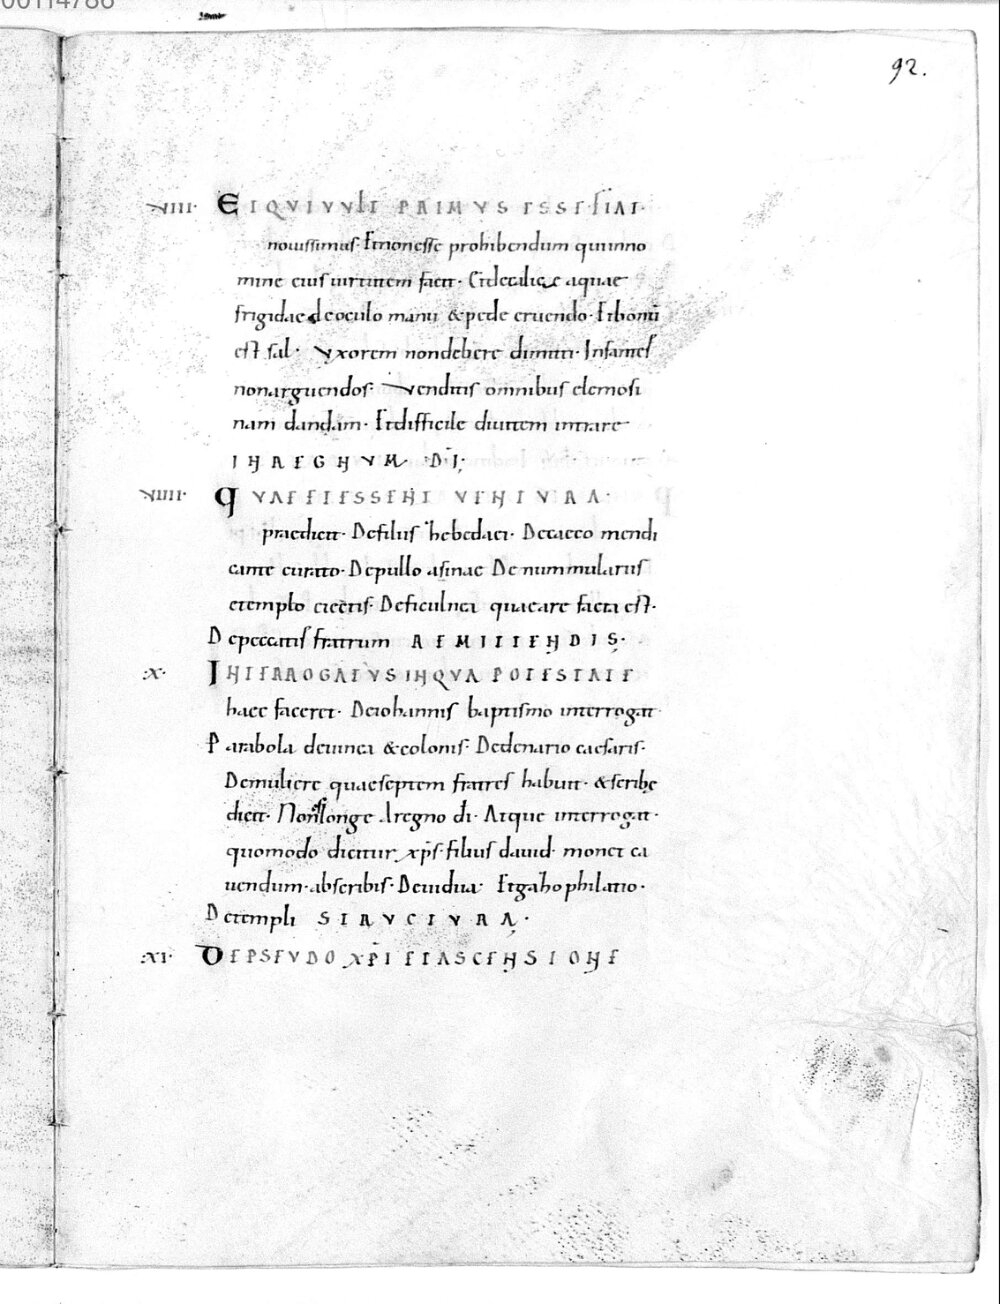 00114786
92.
VIII· ET QVI VVLT PRIMVS ESSE· SIAT·
nouissimus· Et non esse prohibendum qui in no
mine eius uirtutem facit· Et de calice aquae
frigidae de oculo manu & pede eruendo· Et bonū
est sal· Vxorem non debere dimitti· Infantes
non arguendos· Venditis omnibus elemosi
nam dandam· Et difficile diuitem intrare
IN REGNVM· DĪ;
VIIII· QVAE EI ESSENT VENTVRA·
praedicit· De filiis hebedaei· De caeco mendi
cante curato· De pullo asinae De nummulariis
e templo eiectis· De ficulnea quae are facta est·
De peccatis fratrum REMITTENDIS·
·X· INTERROGATVS IN QVA POTESTATE
haec faceret· De iohannis baptismo interrogat·
Parabola de uinea & colonis· De denario caesaris·
De muliere quae septem fratres habuit· & scribe
dicit· Non es longe A regno dī· Atque interrogat·
quomodo dicitur xp̄s· filius dauid· monet ca
uendum· ab scribis· De uidua· Et gazophilatio·
De templi STRVCTVRA·
·XI· DE PSEVDO XP̄I ET ASCENSIONE